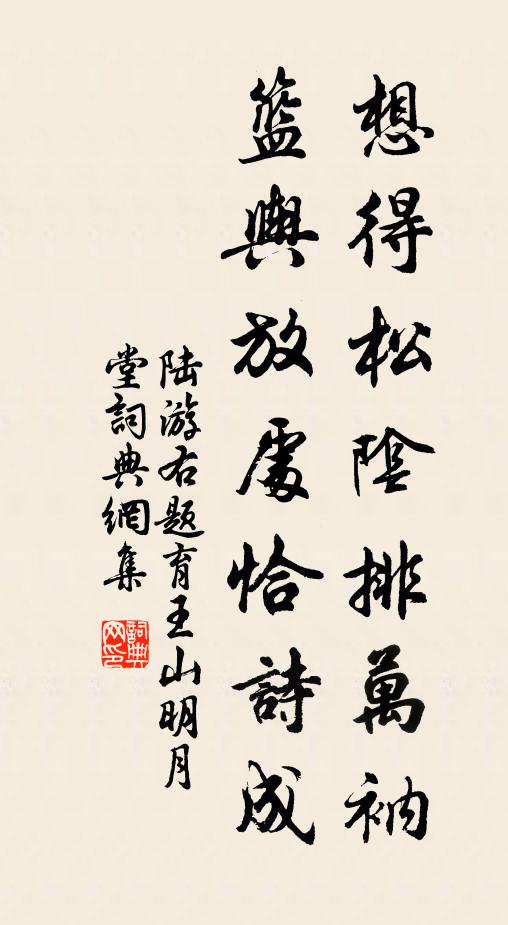 想得松陰排萬衲
籃輿放處恰詩成
陸游右题育王山明月
堂詞典網集
詞典网印